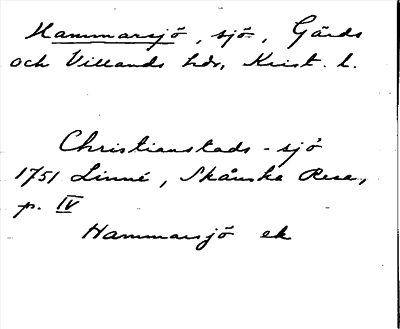 Hammarsjö, sjö, Gärds
och Villands hdr, Krist. l.
Christianstads-sjö
1751 Linné, Skånska Resa,
p. IV
Hammarsjö ek